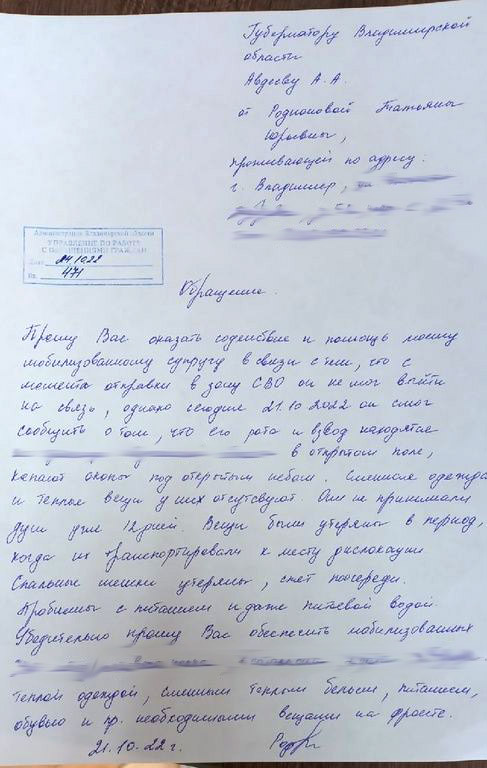 Губернатору Владимирской
области
Авдееву А. А.
от Родионовой Татьяны
Юрьевны,
проживающей по адресу:
г. Владимир,
Администрация Владимирской области
УПРАВЛЕНИЕ ПО РАБОТЕ
С ОБРАЩЕНИЯМИ ГРАЖДАН
24.10.22
Вх. 471
Обращение.
Прошу Вас оказать содействие и помощь моему
мобилизованному супругу в связи с тем, что с
момента отправки в зону СВО он не мог выйти
на связь, однако сегодня 21.10.2022 он смог
сообщить о том, что его рота и взвод находятся
в открытом поле,
копают окопы под открытым небом. Сменная одежда
и теплые вещи у них отсутсвуют. Они не принимали
душ уже 12 дней. Вещи были утеряны в период,
когда их транспортировали к месту дислокации
Спальные мешки утеряны, спят поочереди.
Проблемы с питанием и даже питьевой водой.
Убедительно прошу Вас обеспечить мобилизованных
теплой одеждой, сменным теплым бельем, питанием,
обувью и пр. необходимыми вещами на фронте.
21.10.22 г.